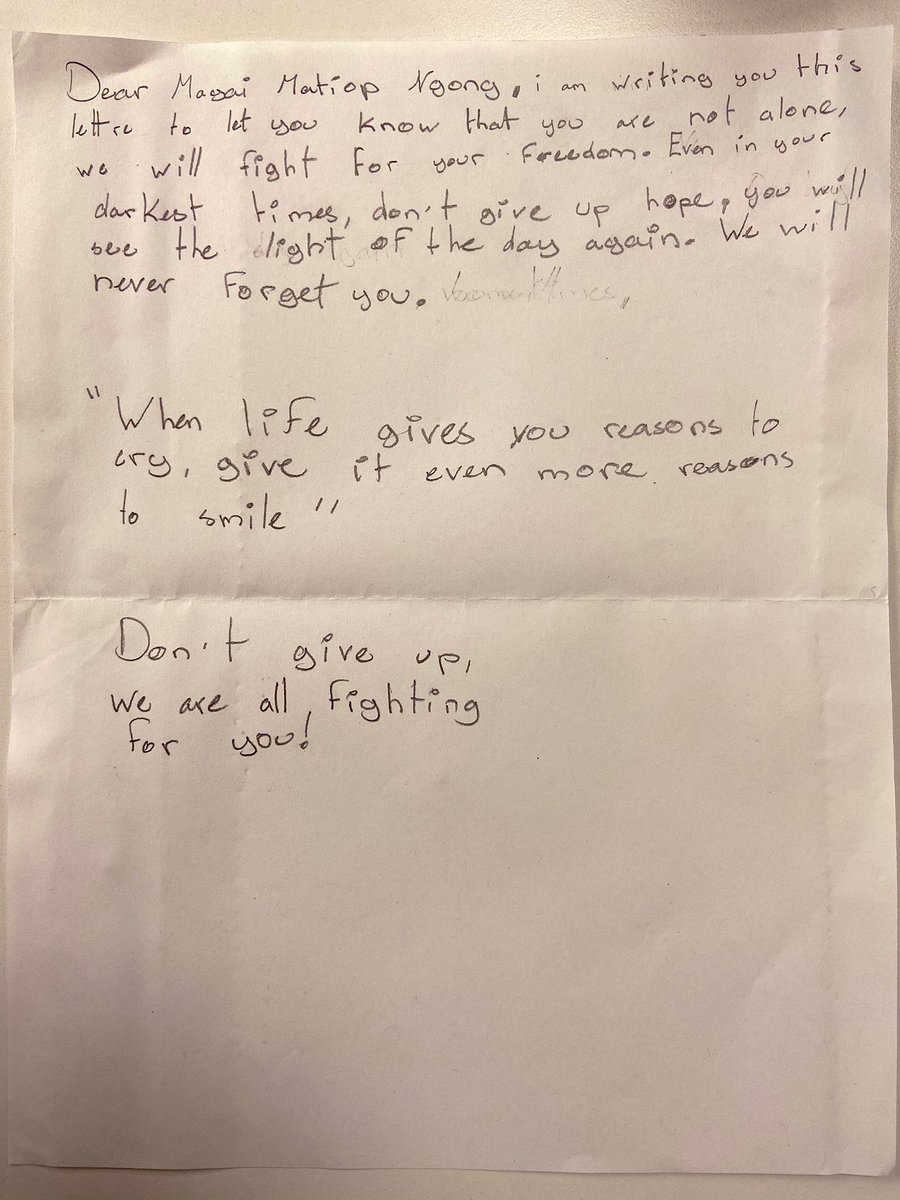 Dear Magai Matiop Ngong, i am writing you this
lettre to let you know that you are not alone,
we will fight for your freedom. Even in your
darkest times, don't give up hope, you will
see the light of the day again. We will
never forget you.
"When life gives you reasons to
cry, give it even more reasons
to smile"
Don't give up,
we are all fighting
for you!